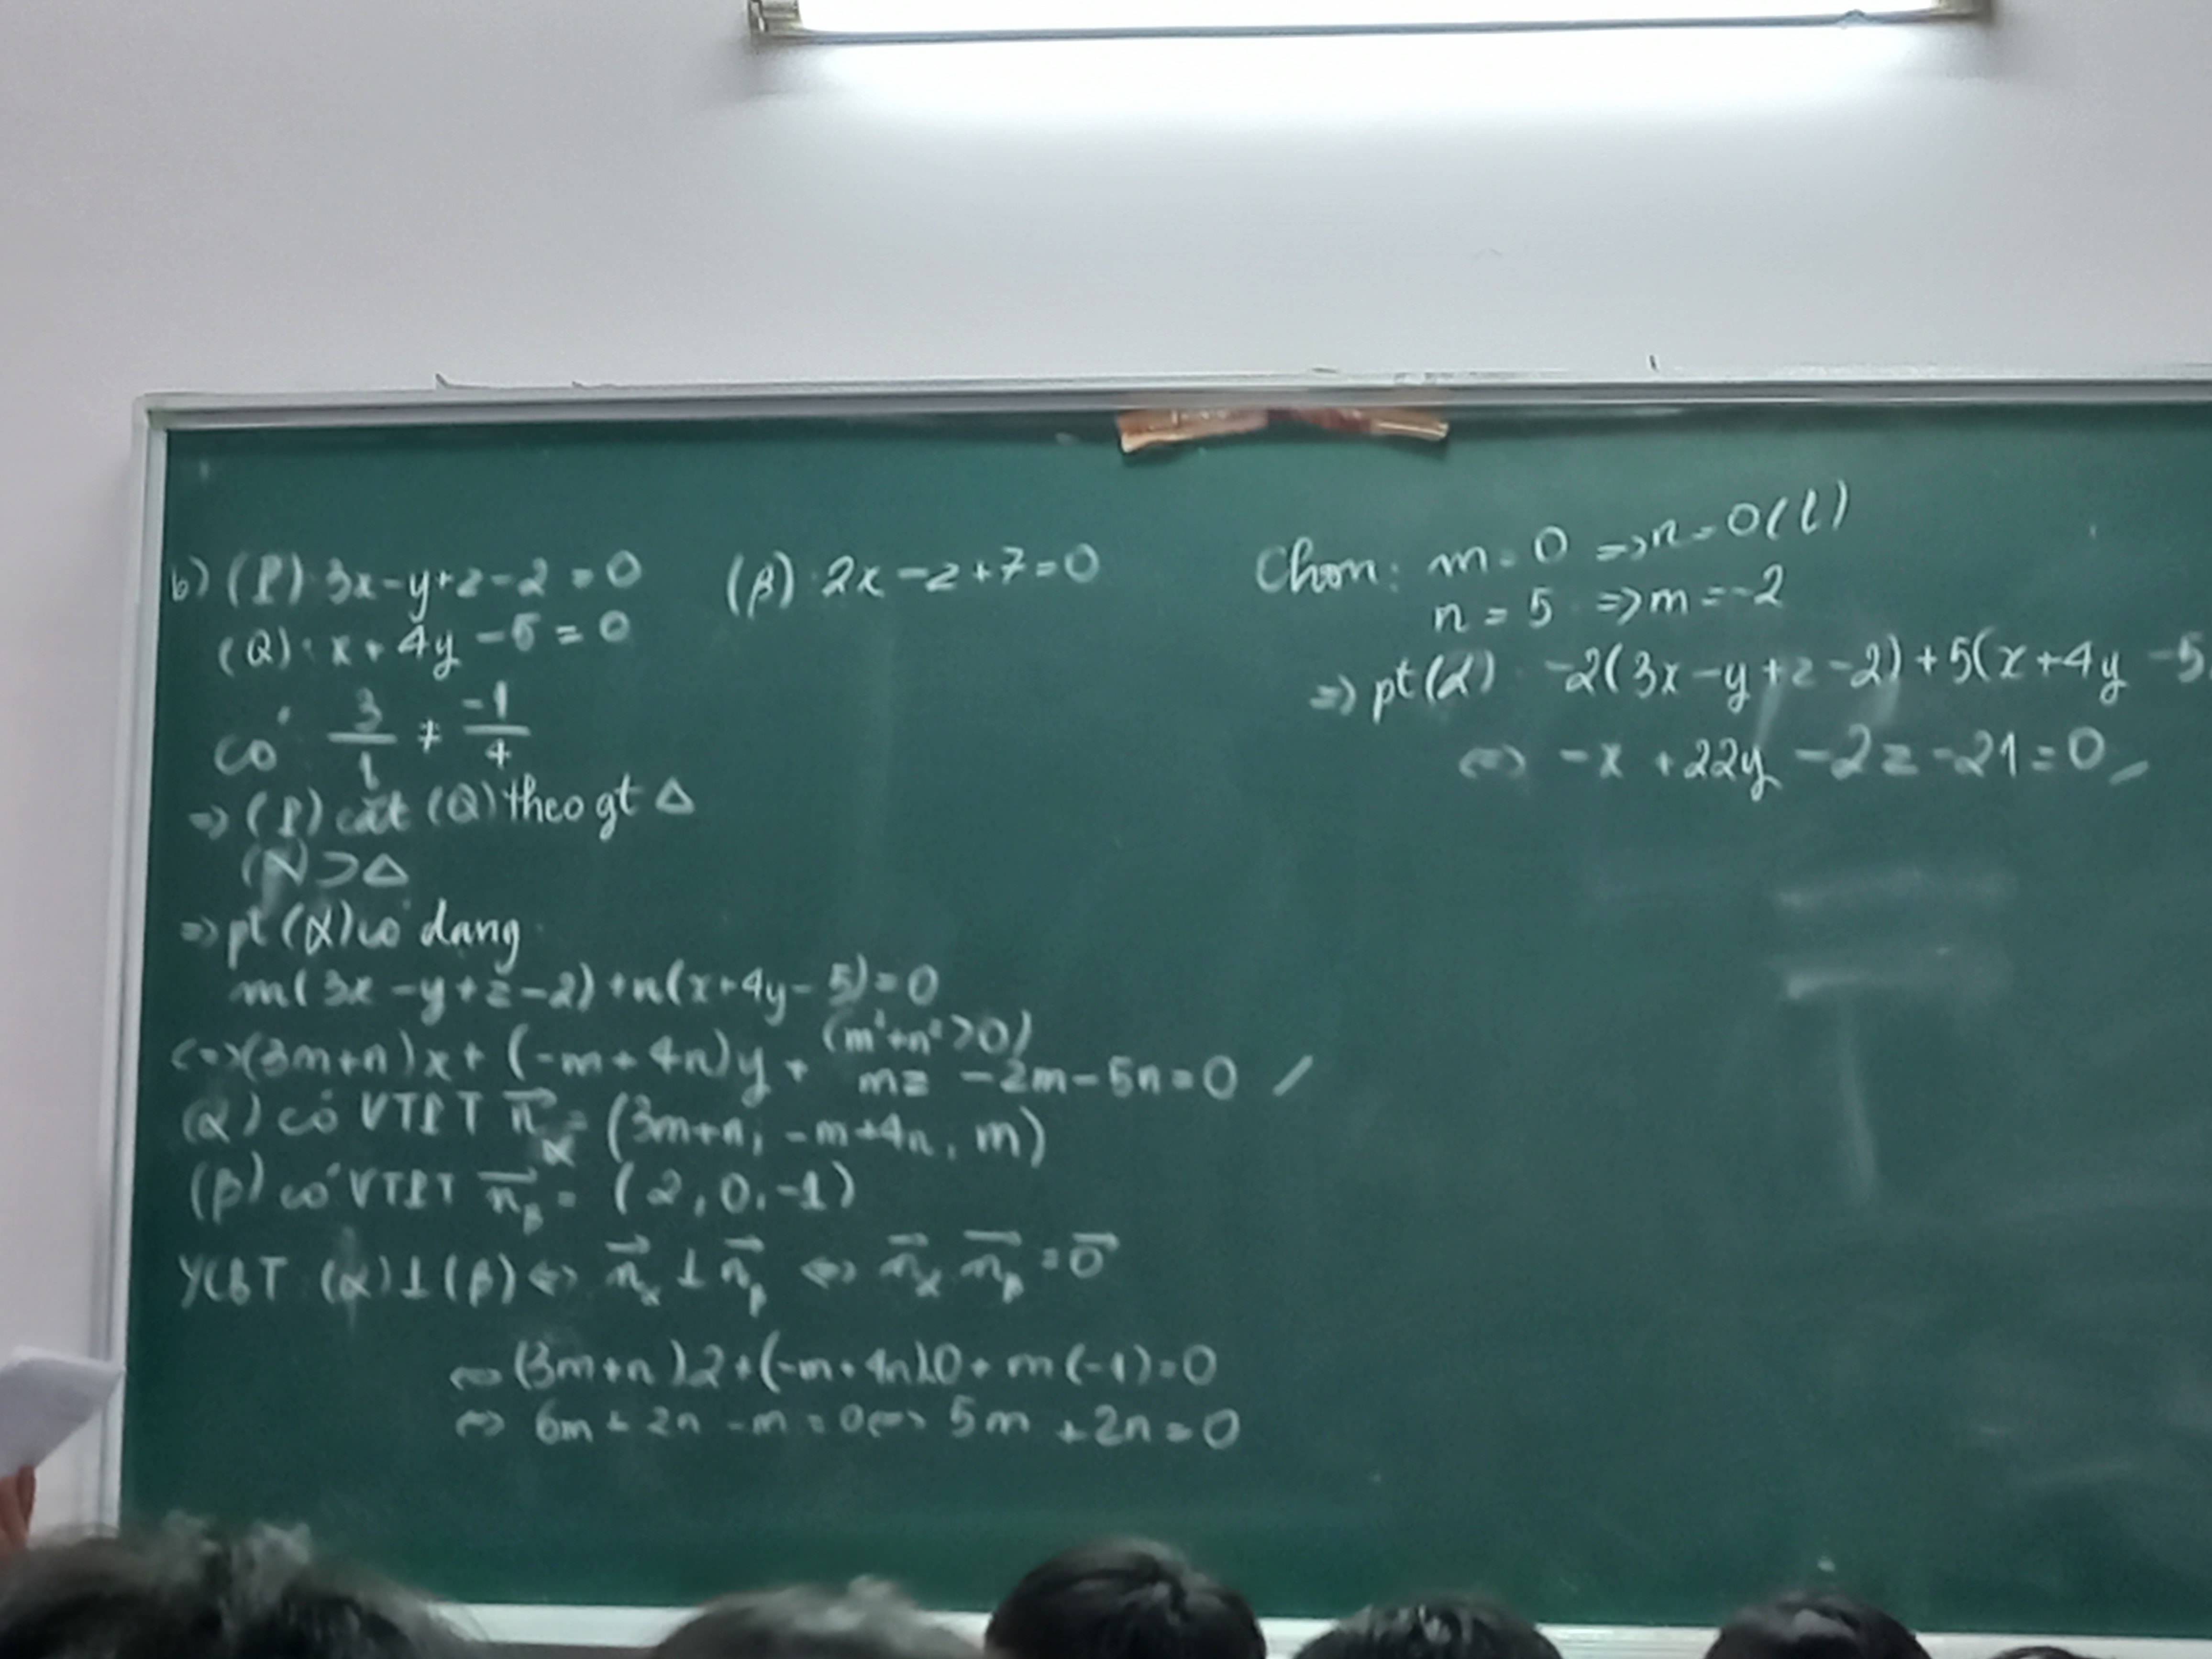 b) (P): 3x - y + z - 2 = 0    (β): 2x - z + 7 = 0
(Q): x + 4y - 5 = 0
có 3/1 ≠ -1/4
=> (P) cắt (Q) theo gt Δ
(α) ⊃ Δ
=> pt (α) có dạng
m(3x - y + z - 2) + n(x + 4y - 5) = 0
(m² + n² > 0)
<=> (3m+n)x + (-m + 4n)y + mz - 2m - 5n = 0
(α) có VTPT n⃗_α = (3m+n; -m+4n, m)
(β) có VTPT n⃗_β = (2, 0, -1)
YCBT (α) ⊥ (β) <=> n⃗_α ⊥ n⃗_β <=> n⃗_α . n⃗_β = 0⃗
<=> (3m+n).2 + (-m+4n).0 + m(-1) = 0
<=> 6m + 2n - m = 0 <=> 5m + 2n = 0
Chọn: m = 0 => n = 0 (l)
n = 5 => m = -2
=> pt (α): -2(3x - y + z - 2) + 5(x + 4y - 5
<=> -x + 22y - 2z - 21 = 0